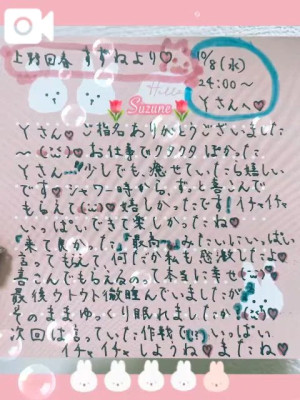 上野回春 すずねより♡
10/8(水)
24:00〜
Yさんへ♡
Hello
Suzune
Yさん♡ご指名ありがとうございました
〜 お仕事でクタクタぽかった
Yさん…少しでも、癒せていたら嬉しい
です♡シャワー時から、ずっと喜んで
もらえて♡嬉しかったです!イチャイチャ
いっぱいできて楽しかったね♡
「来て良かった」「最高〜」みたいにいっぱい
言ってもらえて、何だか私も感激したよ♡
喜こんでもらえるのって本当に幸せ
最後ウトウト微睡んでいましたが
そのままゆっくり眠れましたか
次回は言っていた作戦でいっぱい
イチャイチャしようね♡またね♡